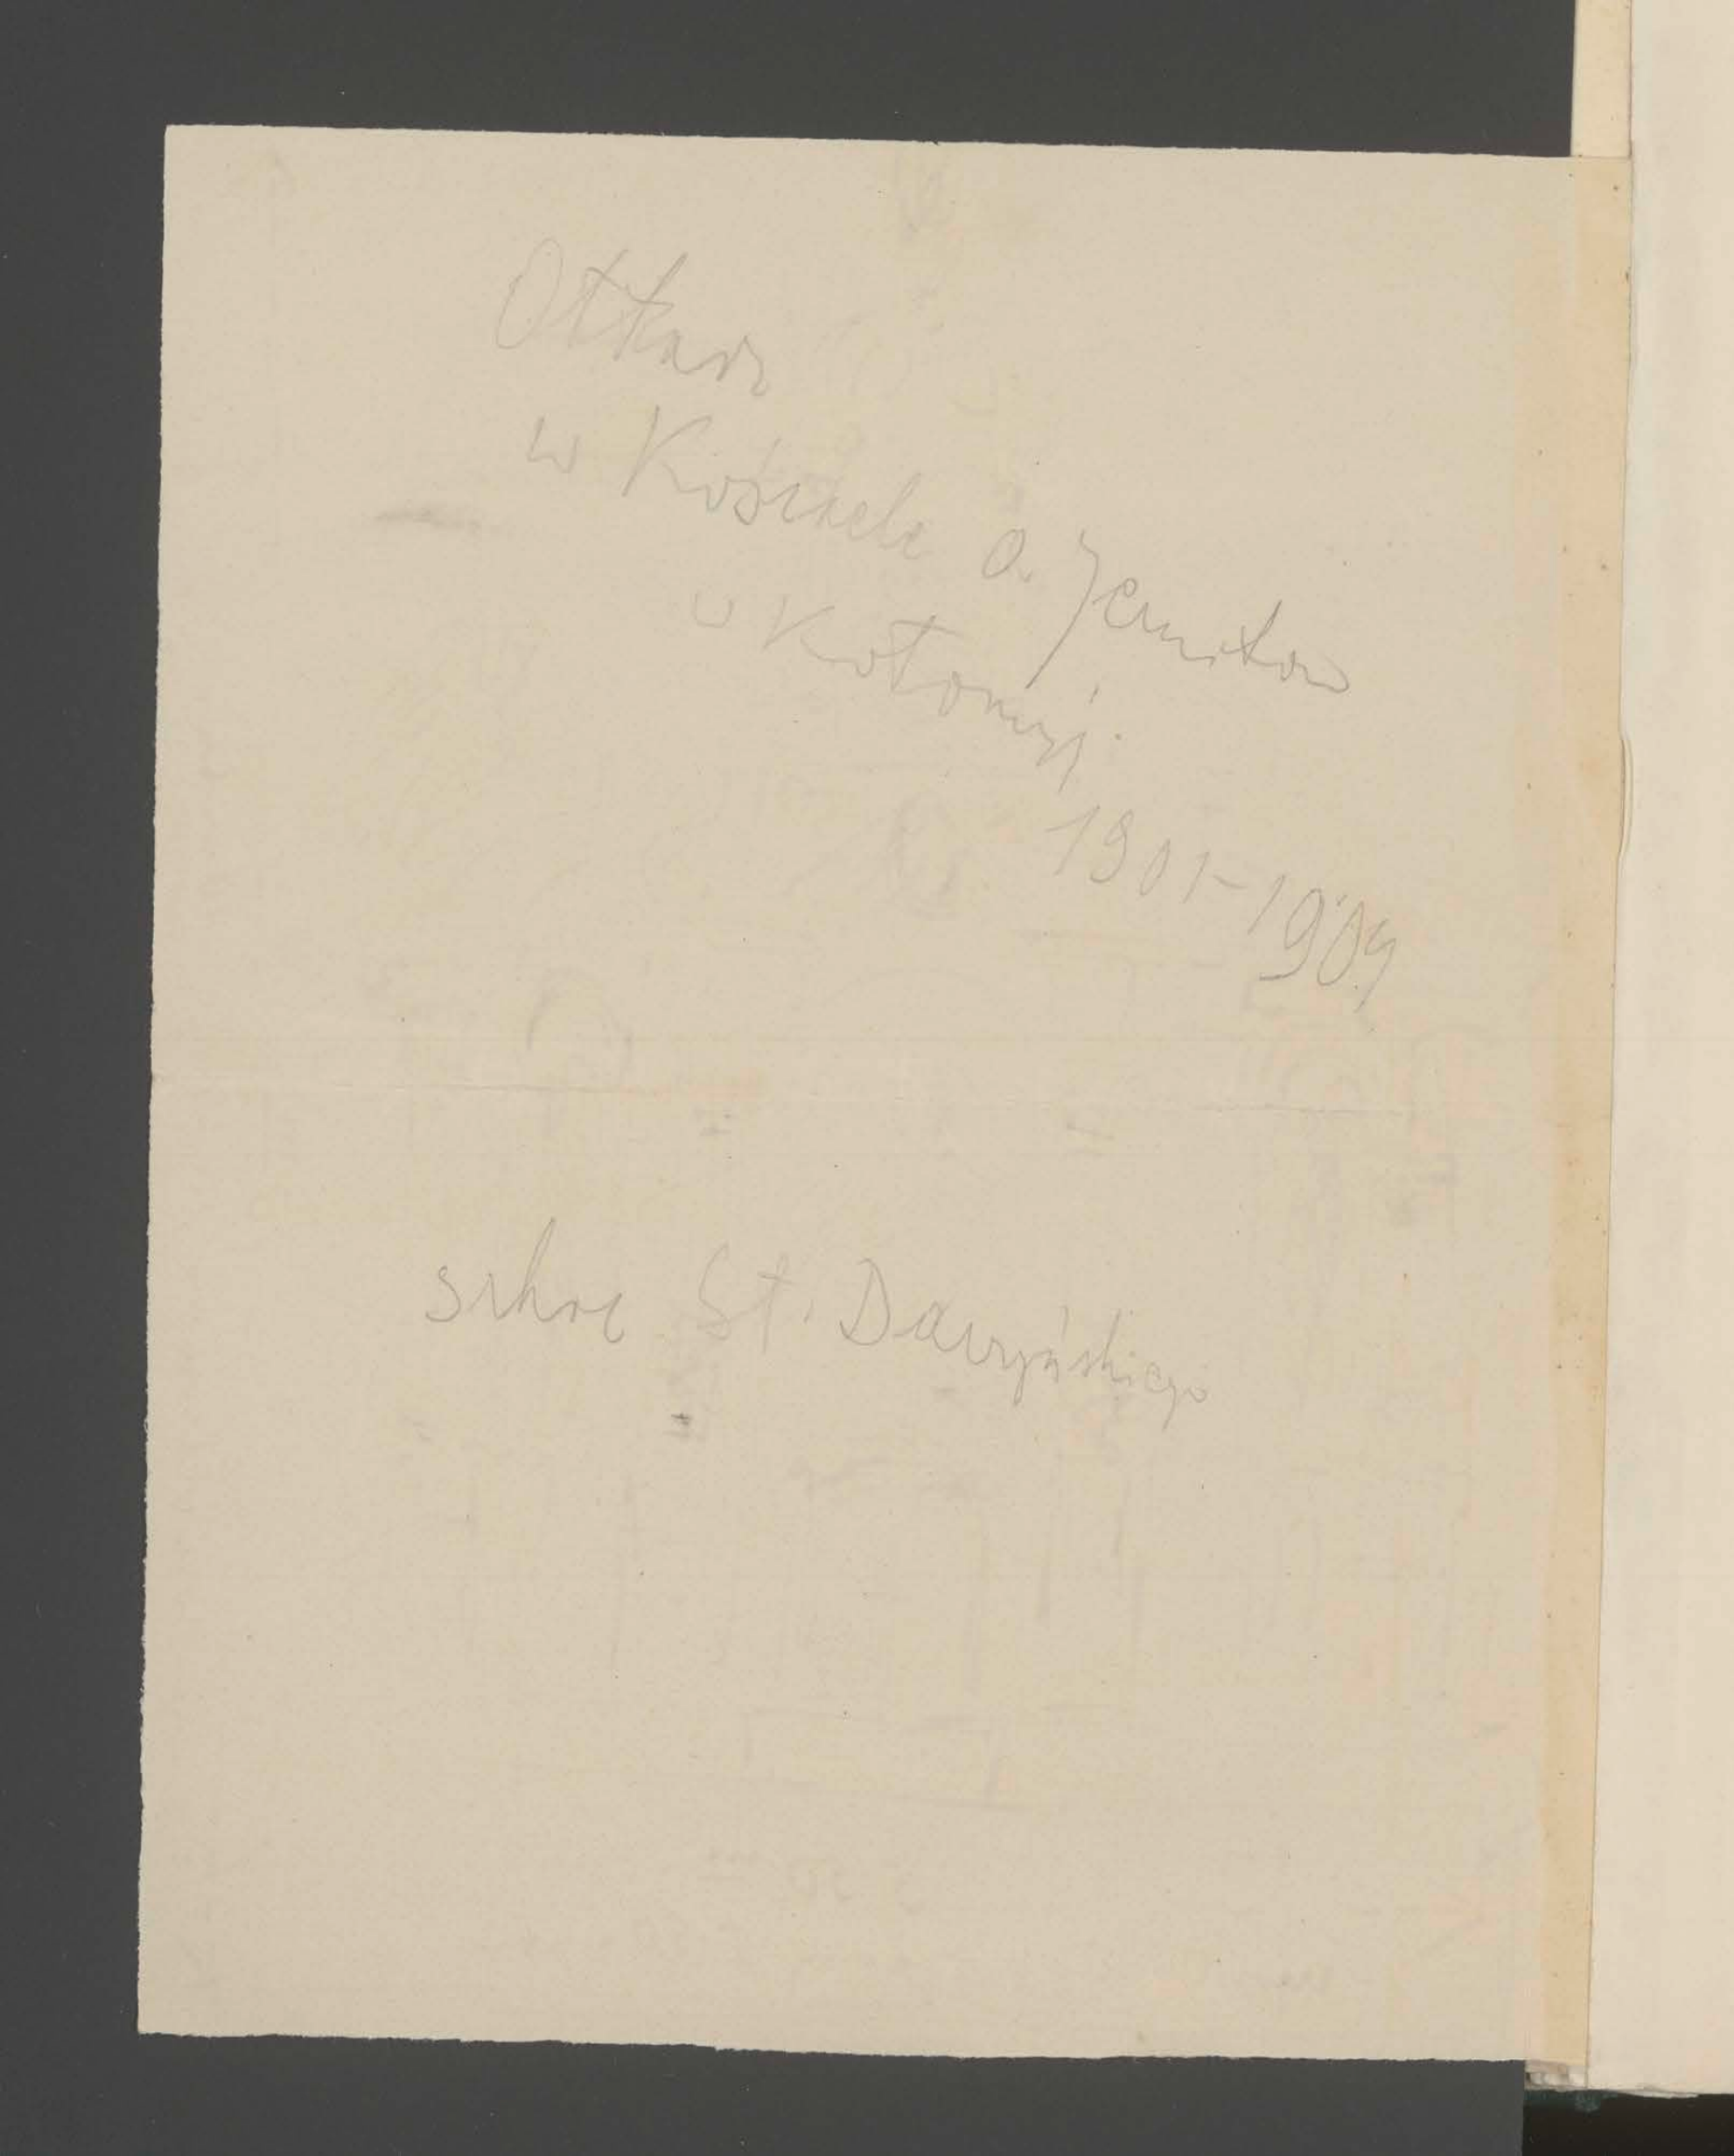 Ołtarz
w Kościele O. Jezuitów
w Kołomyji
1901-1909
szkic St. Daczyńskiego